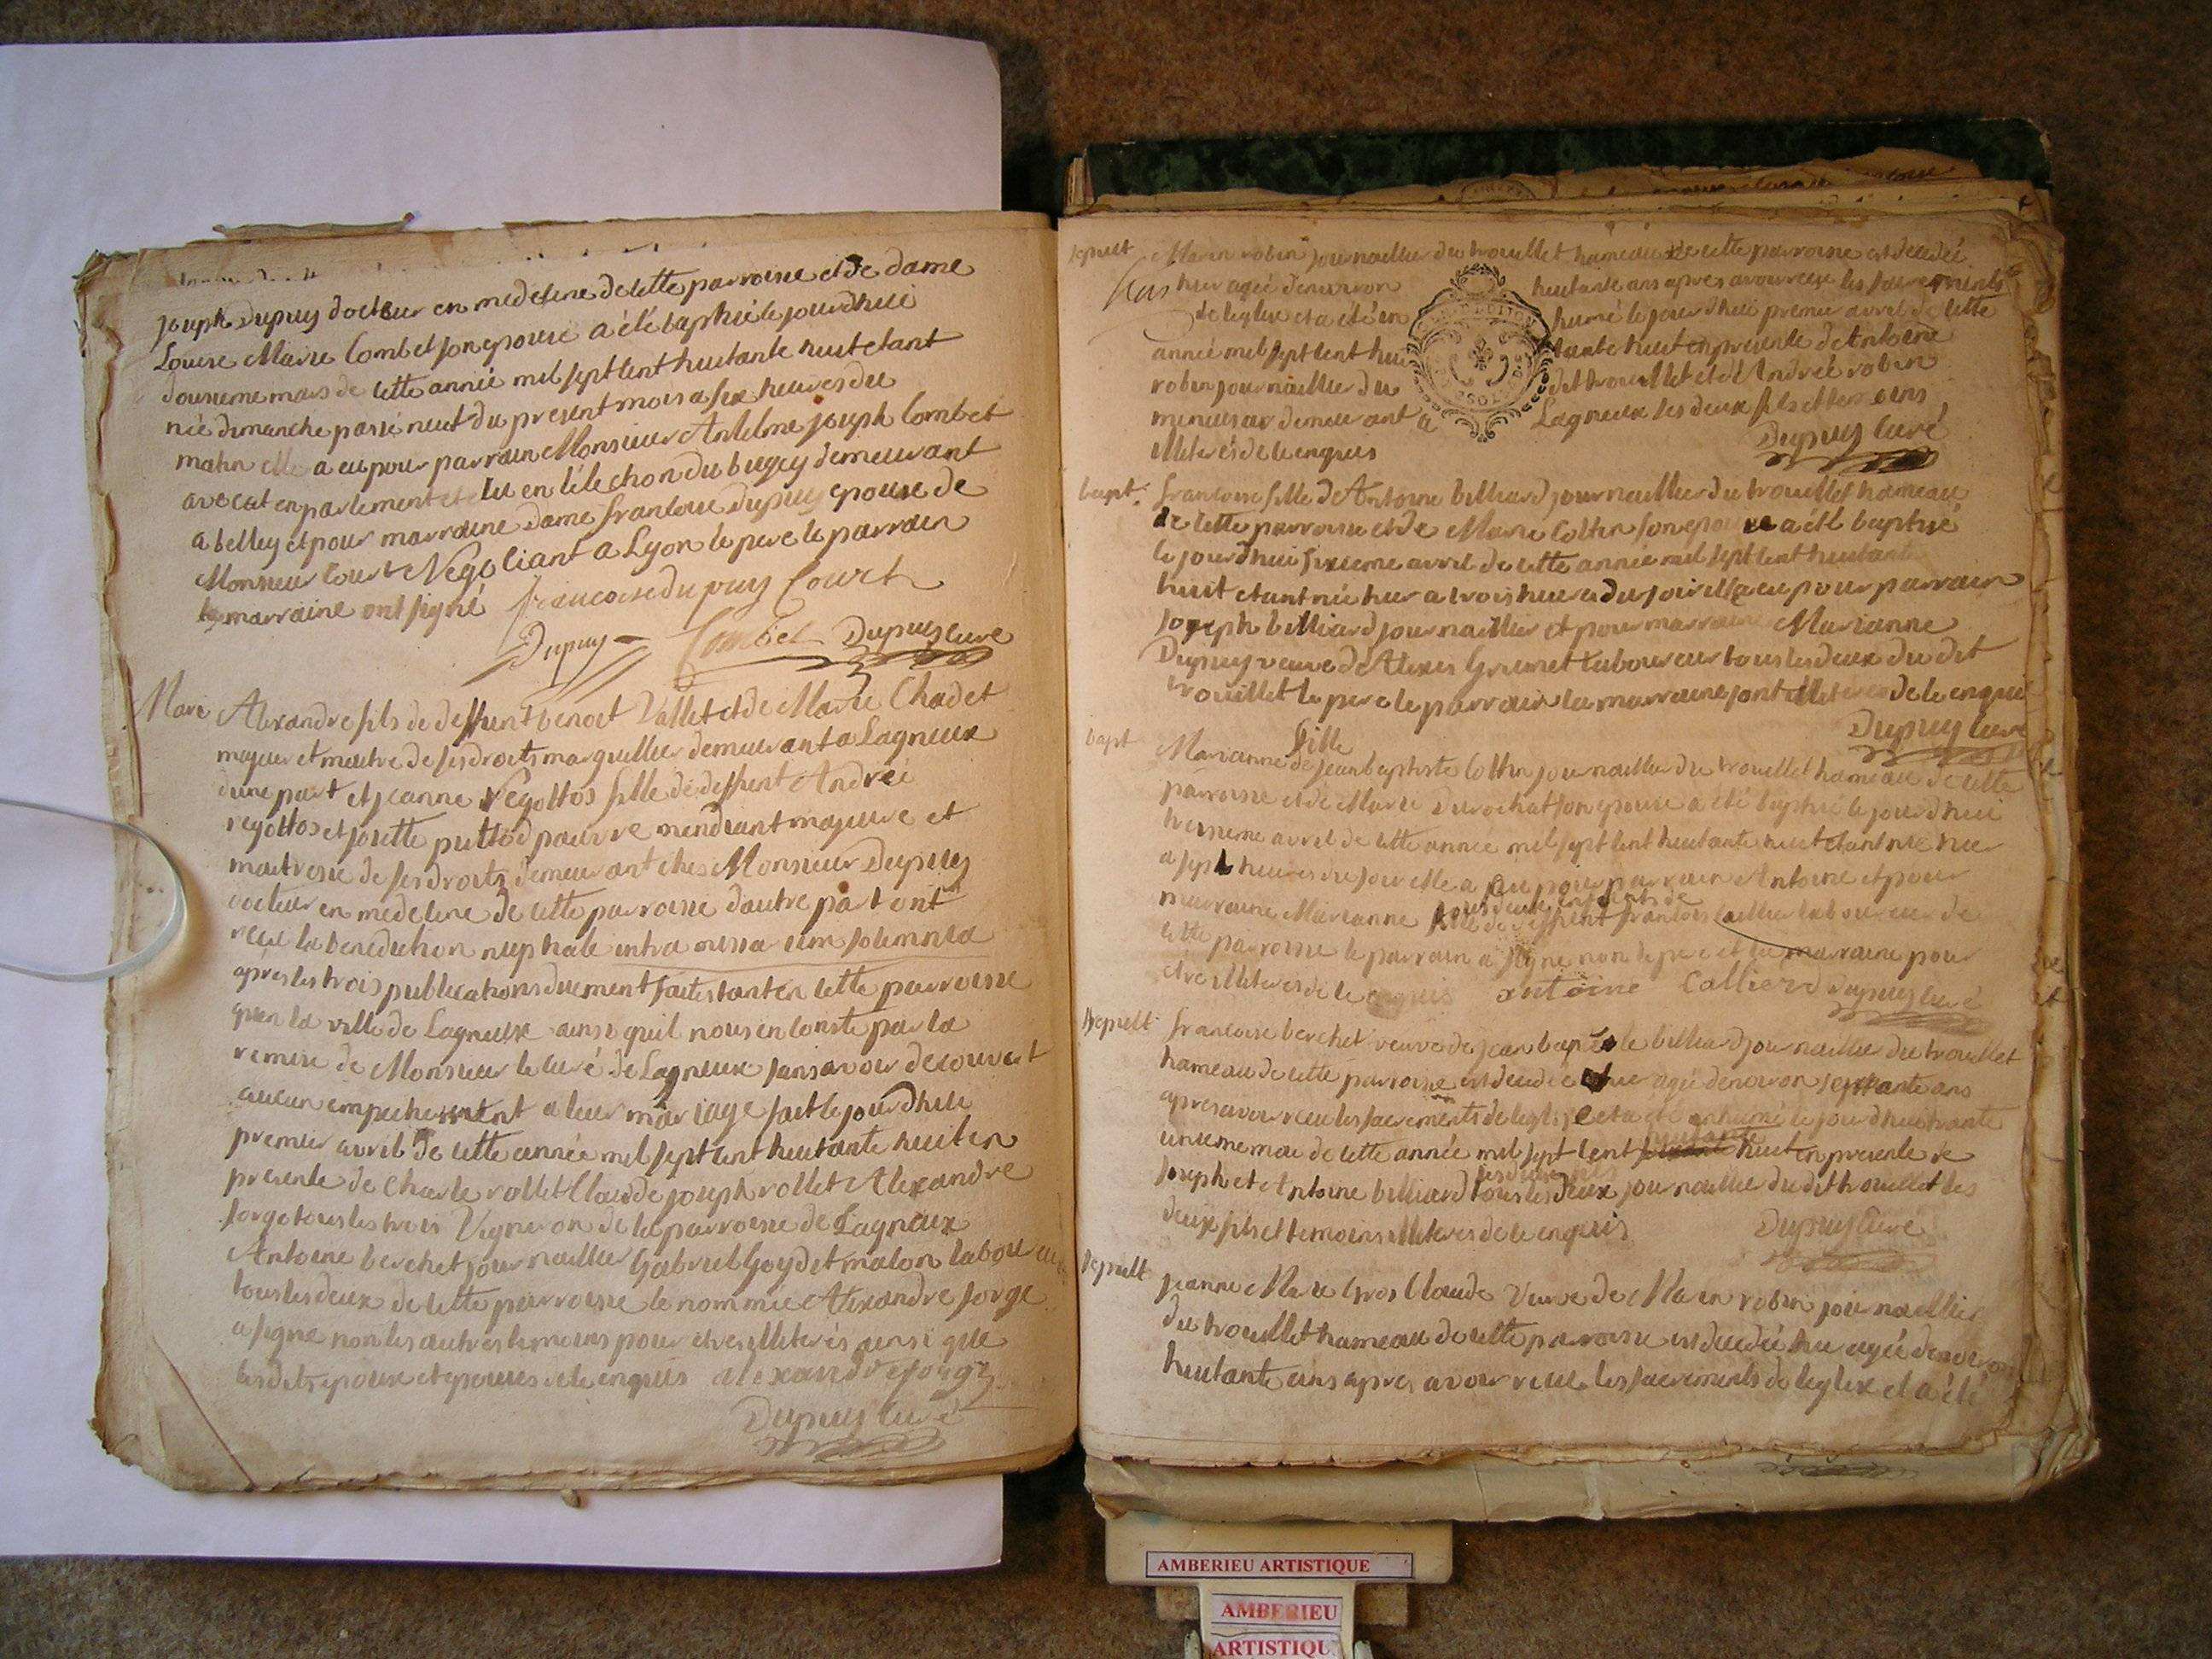 joseph Dupuy docteur en medecine de cette parroisse et de dame
Louise Marie Combet son epouse a été baptisé le jourdhui
dousieme mars de cette année mil sept cent huitante huit etant
née dimanche passé neuf du present mois a six heures du
matin elle a eu pour parrain Monsieur Antelme joseph Combet
avocat en parlement et elu en l'élection du bugey demeurant
a belley et pour marraine dame francoise dupuy epouse de
Monsieur Court Negociant a Lyon le pere le parrain
la marraine ont signé francoise dupuy Court
Dupuy Combet Dupuy curé
Mari Alexandre fils de deffunt benoet Vallet et de Marie Chadet
majeur et maitre de ses droits marguillier demeurant a Lagneux
d'une part et jeanne Regottos fille de deffunt André
regottos et josette puttod pauvre mendiant majeure et
maitresse de ses droits demeurant ches Monsieur Dupuy
docteur en medecine de cette parroisse dautre part ont
receu la benediction nuptiale intra missa cum solemnia
apres les trois publications duement faites tant en cette parroisse
quen la ville de Lagneux ainsi quil nous en conste par la
remise de Monsieur le curé de Lagneux sans avoir decouvert
aucun empechement a leur mariage fait le jourdhui
premier avril de cette année mil sept cent huitante huit en
presence de Charle rollet Claude joseph rollet Alexandre
forge tous les trois Vigneron de la parroisse de Lagneux
Antoine berchet journaillier Gabriel Goy dit malon laboureur
tous les deux de cette parroisse le nommé Alexandre forge
a signe non les autres temoins pour etre illiterés ainsi que
lesdits epoux et epouse de ce enquis alexandre forge
Dupuy curé
sepult Marin robin journaillier du trouillet hameau de cette parroisse est decedé
hier agée denviron huitante ans apres avoir receu les sacrements
de leglise et a eté en humé le jourdhui premier avril de cette
année mil sept cent hui tante huit en presence de Antoine
robin journaillier du dit trouillet et d'Andrée robin
menusar demeurant a Lagneux les deux fils et temoins
illiterés de ce enquis Dupuy curé
bapt. francoise fille de Antoine billiard journaillier du trouillet hameau
de cette parroisse et de Marie Cottin son epouse a été baptisé
le jourdhui sixieme avril de cette année mil sept cent huitante
huit etant née hier a trois heures du soir elle a eu pour parrain
joseph billiard journaillier et pour marraine Marianne
Dupuy veuve de Alexis Grumet laboureur tous les deux du dit
trouillet le pere le parrain la marraine sont illiteres de ce enquis
Dupuy curé
bapt Marianne fille de jean baptiste Cottin journaillier du trouillet hameau de cette
parroisse et de Marie Durochat son epouse a été baptisé le jourdhui
treisieme avril de cette année mil sept cent huitante huit etant née hier
a sept heures du soir elle a eu pour parrain Antoine et pour
marraine Marianne tous deux enfents de deffent francois caillier laboureur de
cette parroisse le parrain a signe non le pere et la marraine pour
etre illiteres de ce enquis antoine Callierd Dupuy curé
Sepult francoise berchet veuve de jean baptiste billiard journaillier du trouillet
hameau de cette parroisse est decedée hier agée denviron septante ans
apres avoir receu les sacrements de leglise et a eté enhumé le jourdhui trante
unieme mai de cette année mil sept cent huitante huit en presence de
joseph et Antoine billiard tous les deux journaillier du dit trouillet les
deux fils et temoins illiteres de ce enquis Dupuy curé
Sepult jeanne Marie Gros Claude Veuve de Marin robin journaillier
du trouillet hameau de cette parroisse est decedée hier agée denviron
huitante ans apres avoir receu les sacrements de leglise et a été
AMBERIEU ARTISTIQUE
AMBERIEU
ARTISTIQU